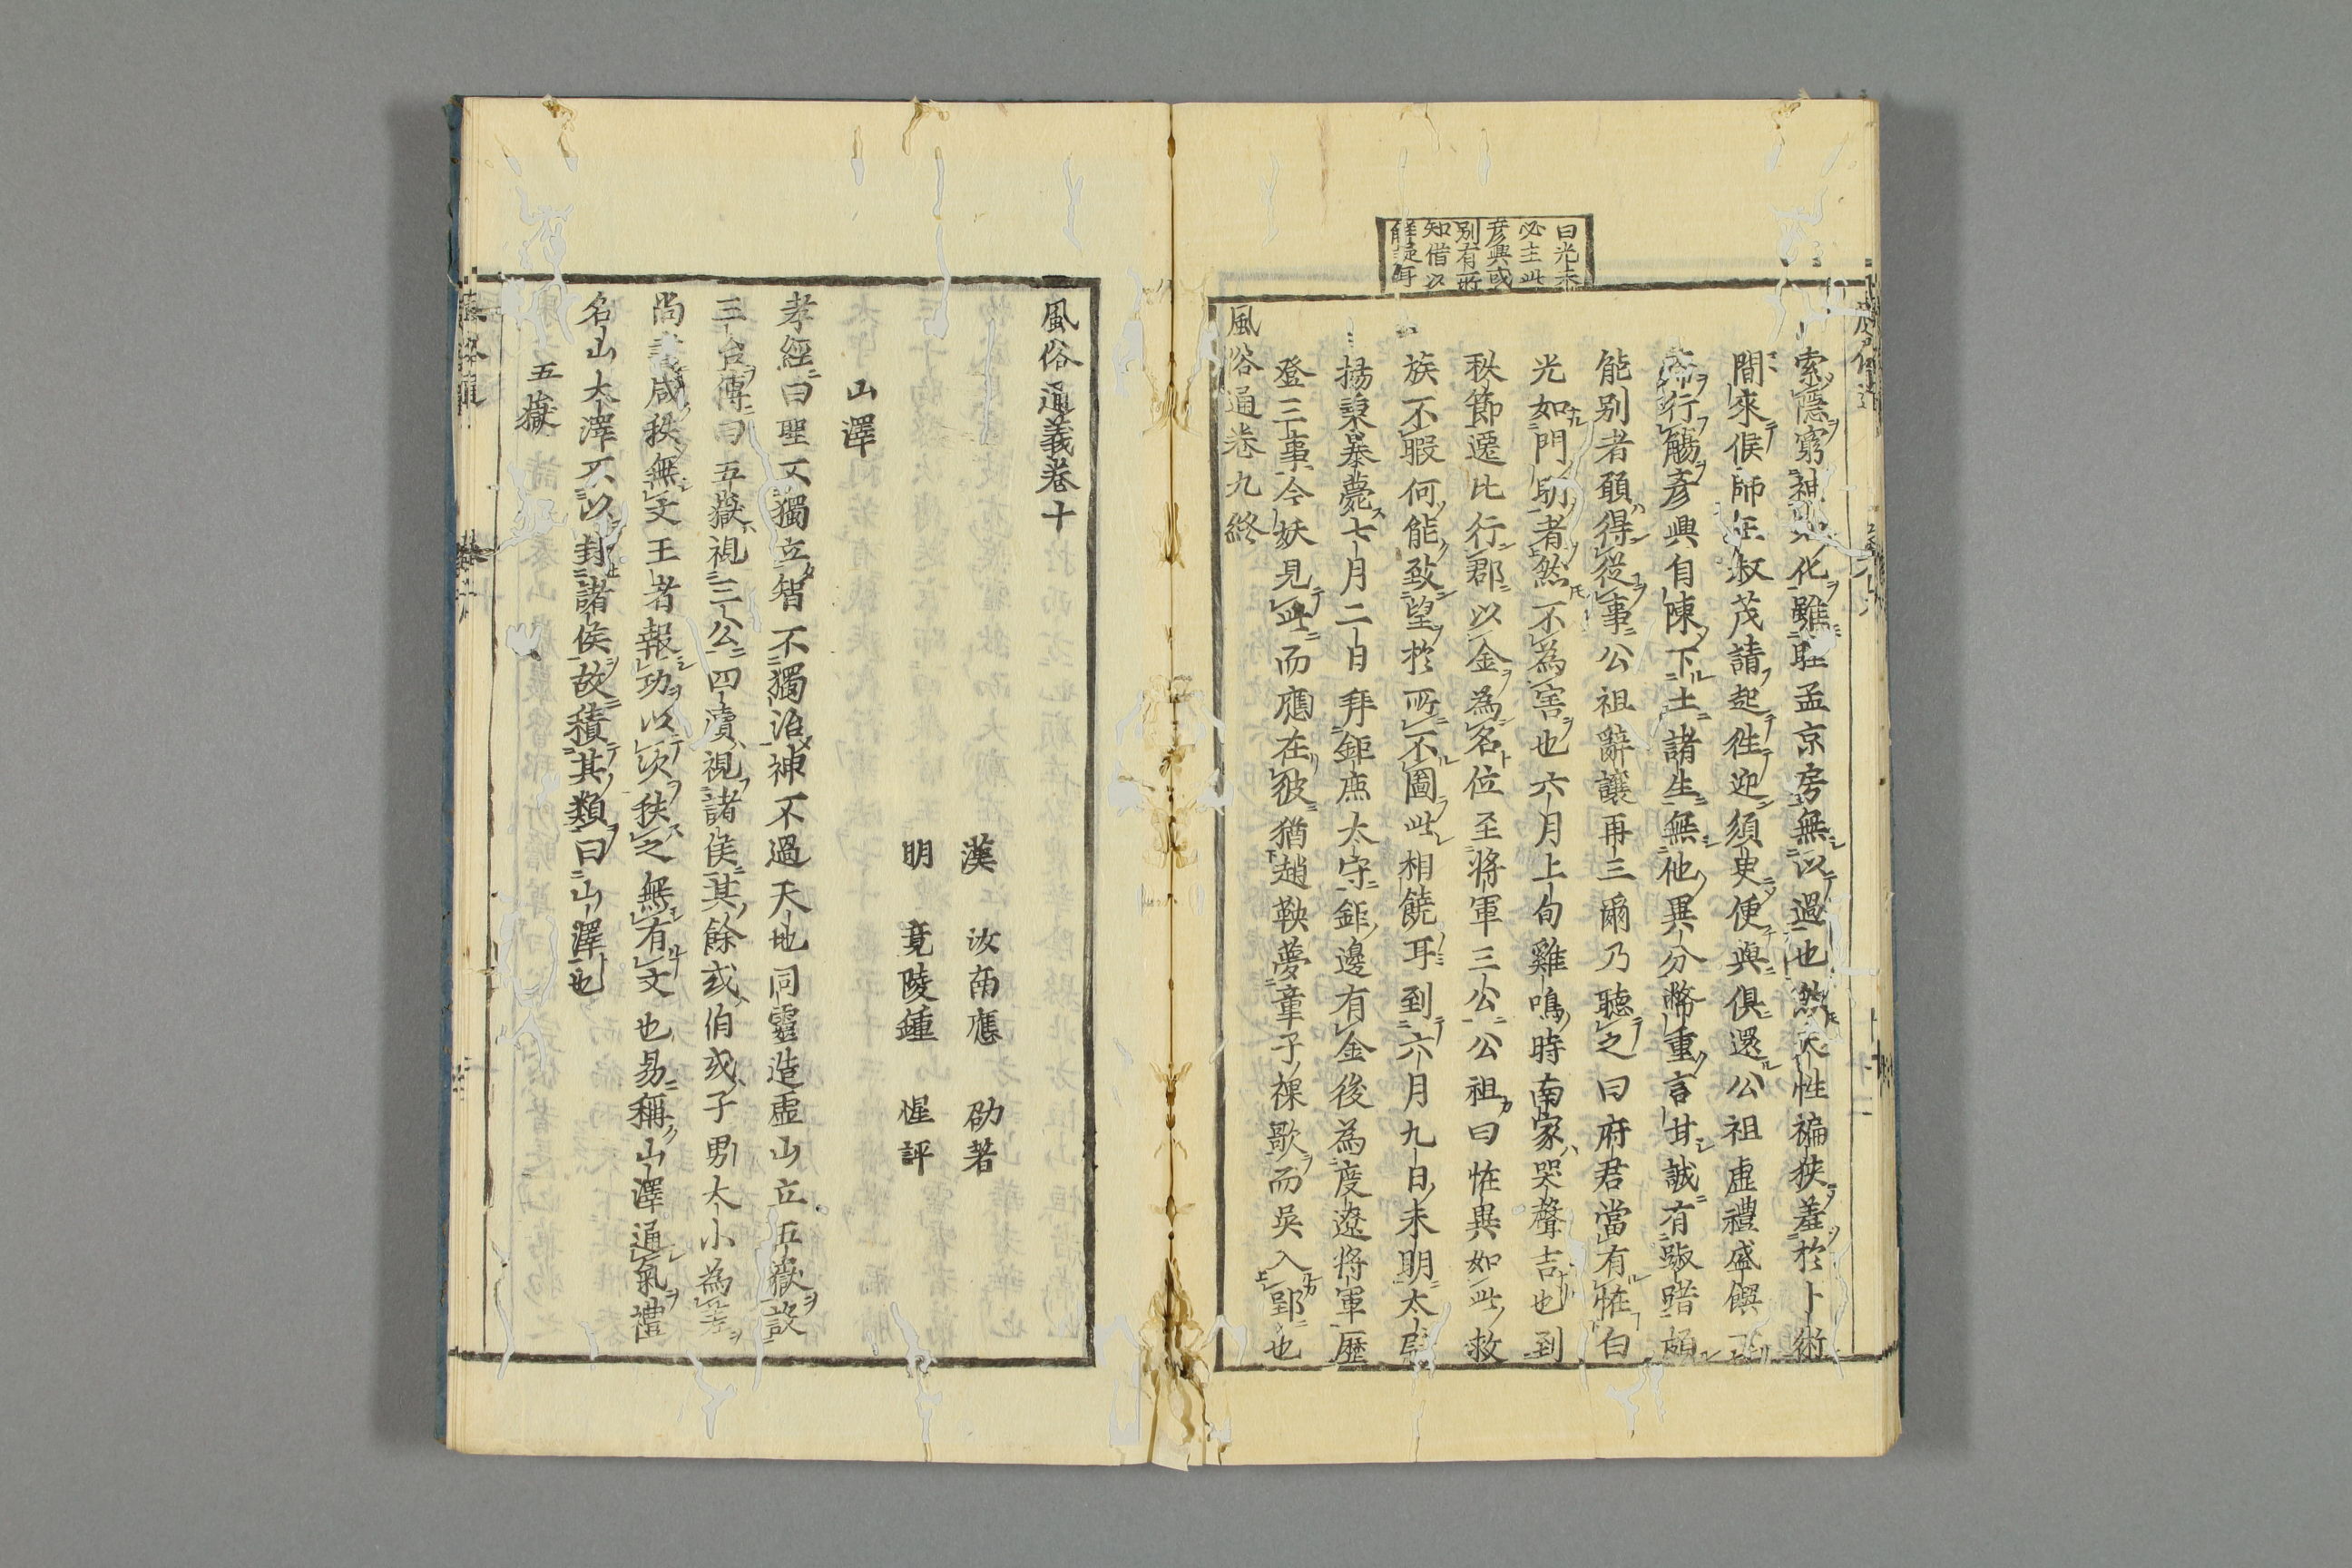 日光未
必主此
彦興或
別有所
知借以
解疑耳
索隱窮神知化雖眭孟京房無以過也然天性褊狹羞於卜術
間來候師王叔茂請起往迎須臾便與俱還公祖虛禮盛饌下
席行觴彦興自陳下土諸生無他異分幣重言甘誠有踧踖頗
能別者願得從事公祖辭讓再三爾乃聽之曰府君當有恠白
光如門明者然不為害也六月上旬雞鳴時南家哭聲吉也到
秋節遷北行郡以金為名位至將軍三公公祖曰恠異如此救
族不暇何能致望於所不圖此相饒耳到六月九日未明太尉
揚秉暴薨七月二日拜鉅鹿太守鉅邊有金後為度遼將軍歷
登三事今妖見此而應在彼猶趙鞅夢童子祼歌而吳入郢也
風俗通卷九終
風俗通義卷十
漢　汝南應　劭著
明　竟陵鍾　惺評
山澤
孝經曰聖不獨立智不獨治神不過天地同靈造虛山立五嶽設
三台傳曰五嶽視三公四瀆視諸侯其餘或伯或子男大小為差
尚書咸秩無文王者報功以次秩之無有文也易稱山澤通氣禮
名山大澤不以封諸侯故積其類曰山澤也
五嶽